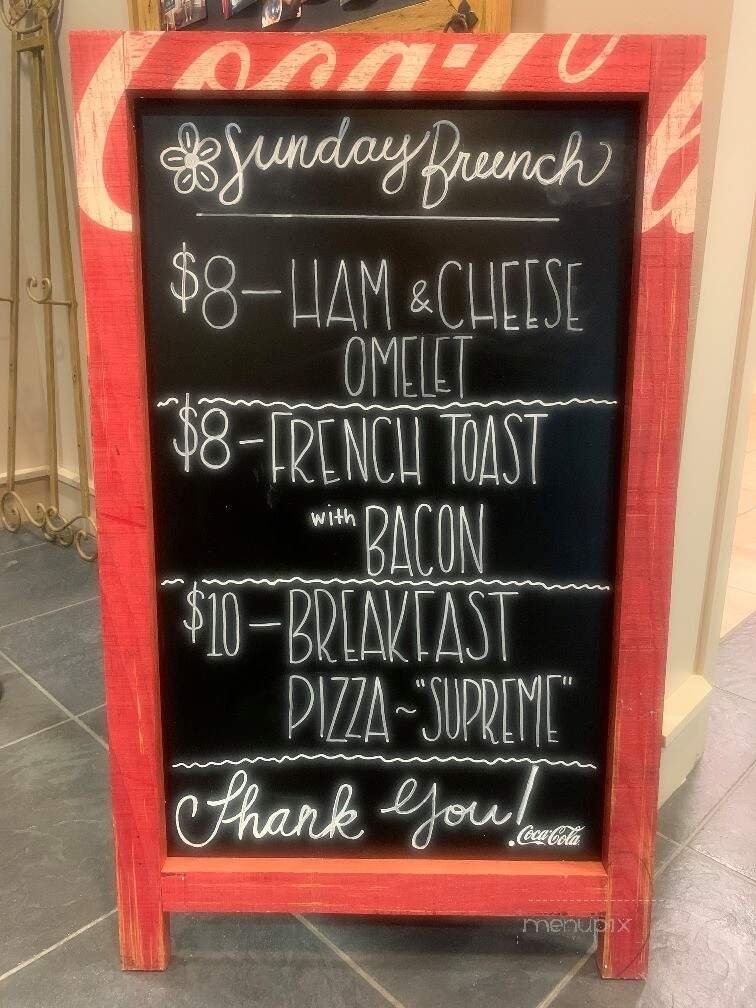 Coca-Co
Sunday Brunch
$8-HAM & CHEESE
OMELET
$8-FRENCH TOAST
with BACON
$10-BREAKFAST
PIZZA ~"SUPREME"
Thank You!
Coca-Cola
menupix